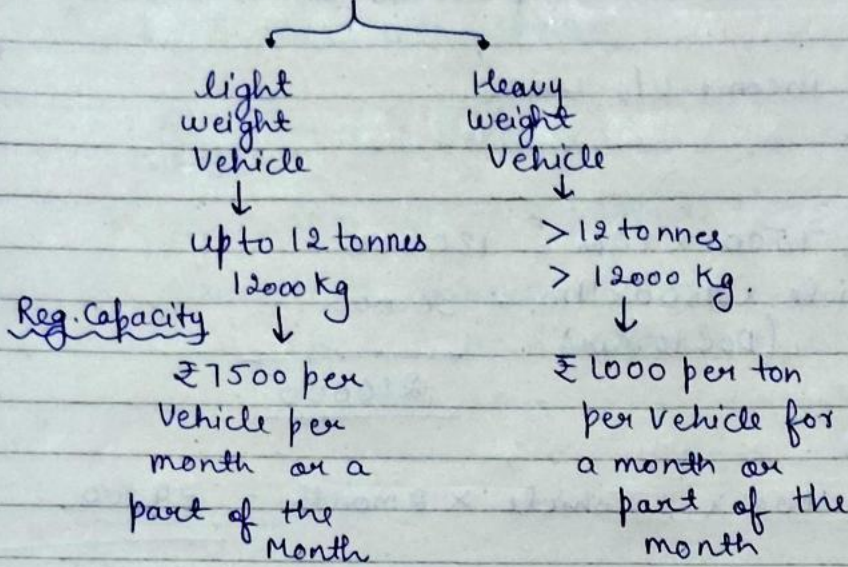 light
weight
Vehicle
↓
up to 12 tonnes
12000 kg
Reg. Capacity
↓
₹7500 per
Vehicle per
month or a
part of the
Month
Heavy
weight
Vehicle
↓
>12 tonnes
> 12000 kg.
↓
₹1000 per ton
per vehicle for
a month or
part of the
month